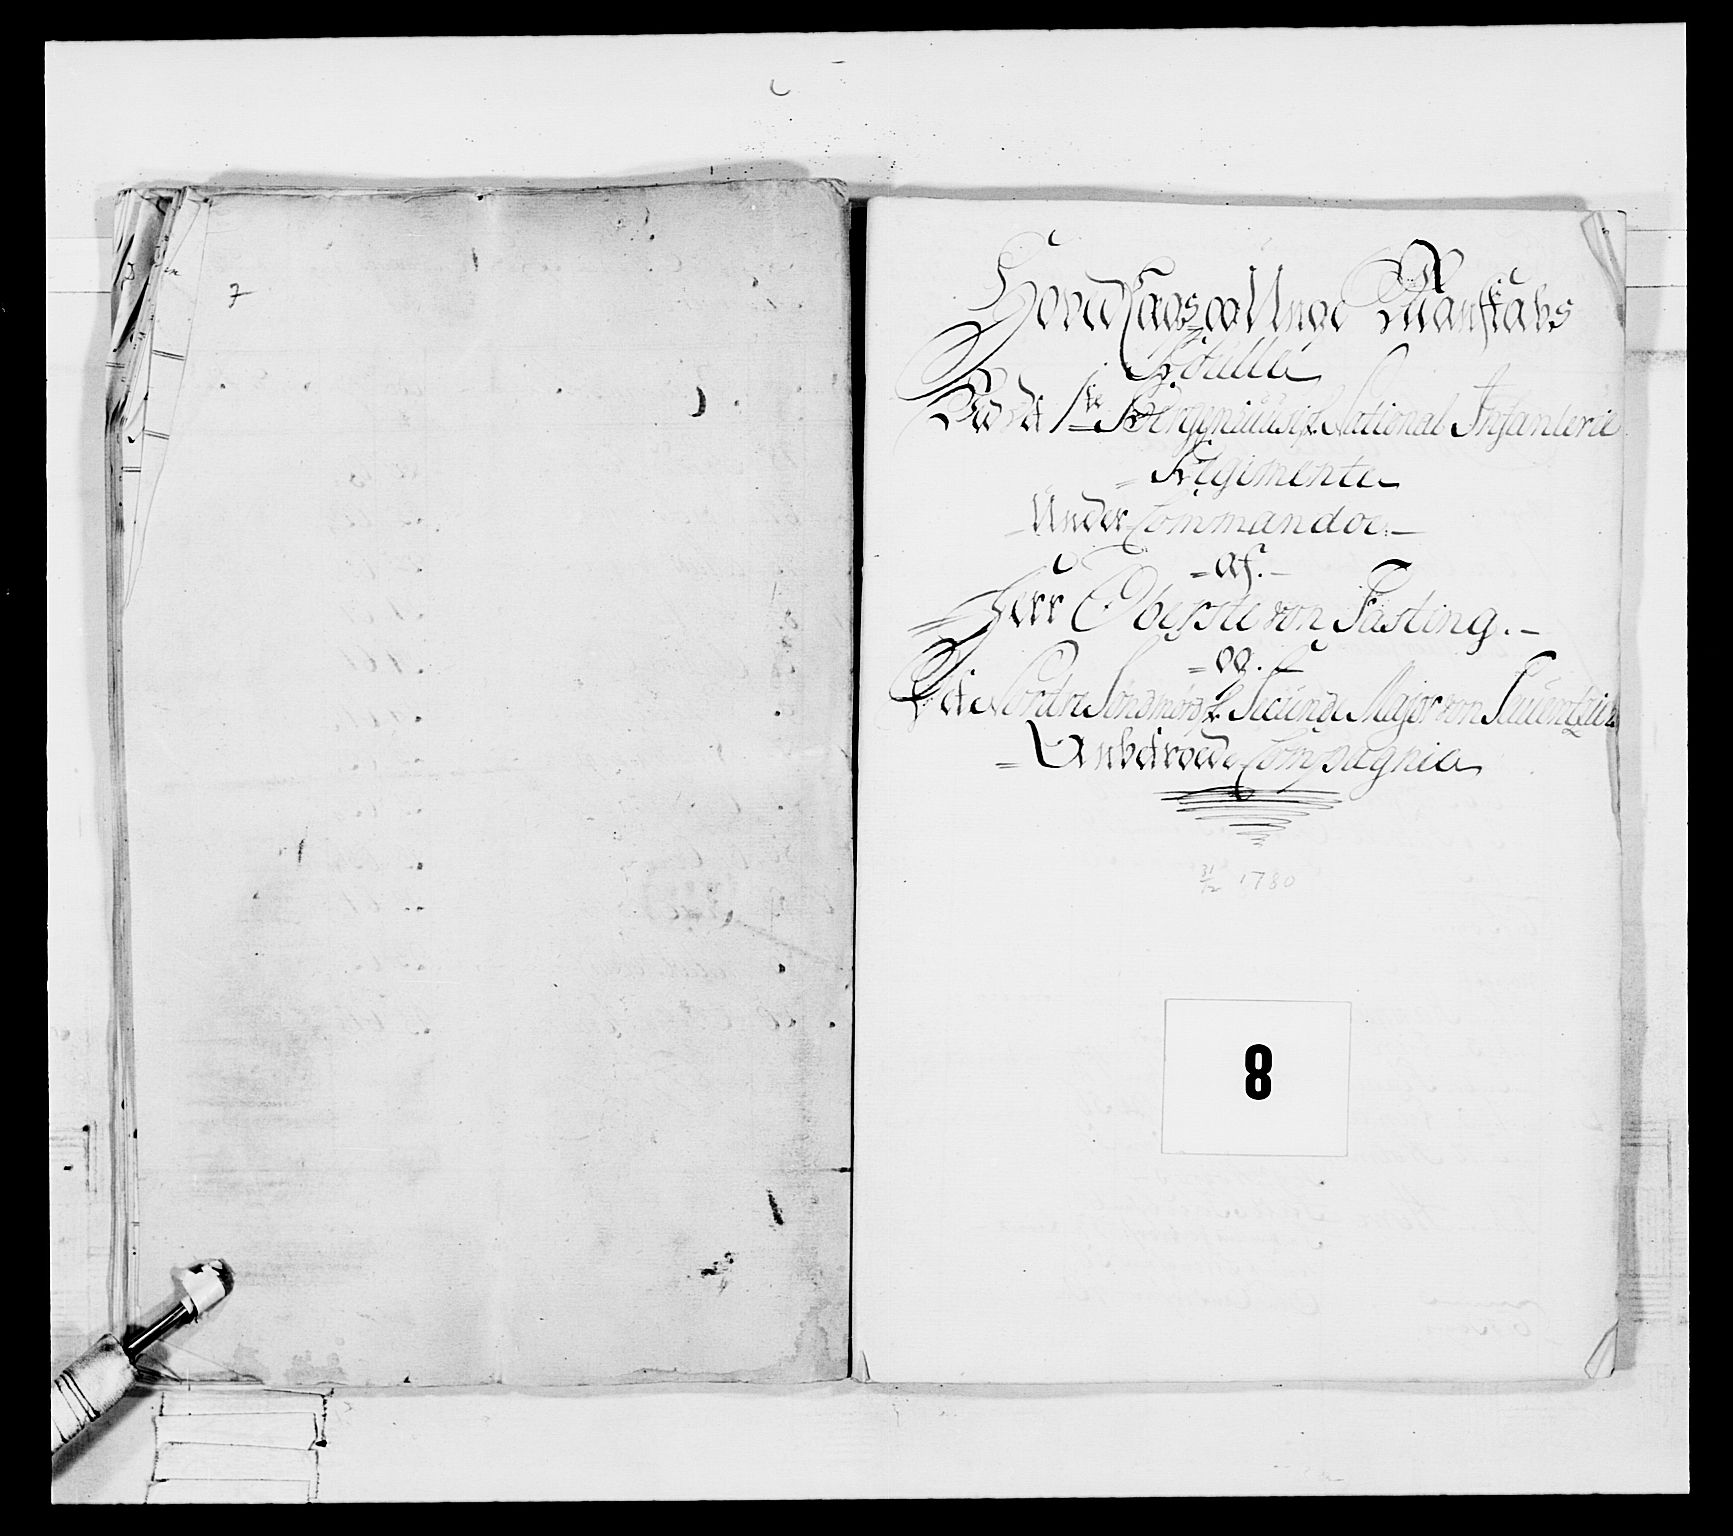 7
Hoved Lags og Unge Mandskabs
Rulle
Ved det 1ste Bergenhuusisk National Infanterie
= Regimente
_ Under Commando: _
= af. _
Herr Oberste von Fasting. _
= og. _
Det Nordre Søndmørsk Secund Major von
= Anbetroede Compagnie
31/12 1780
8